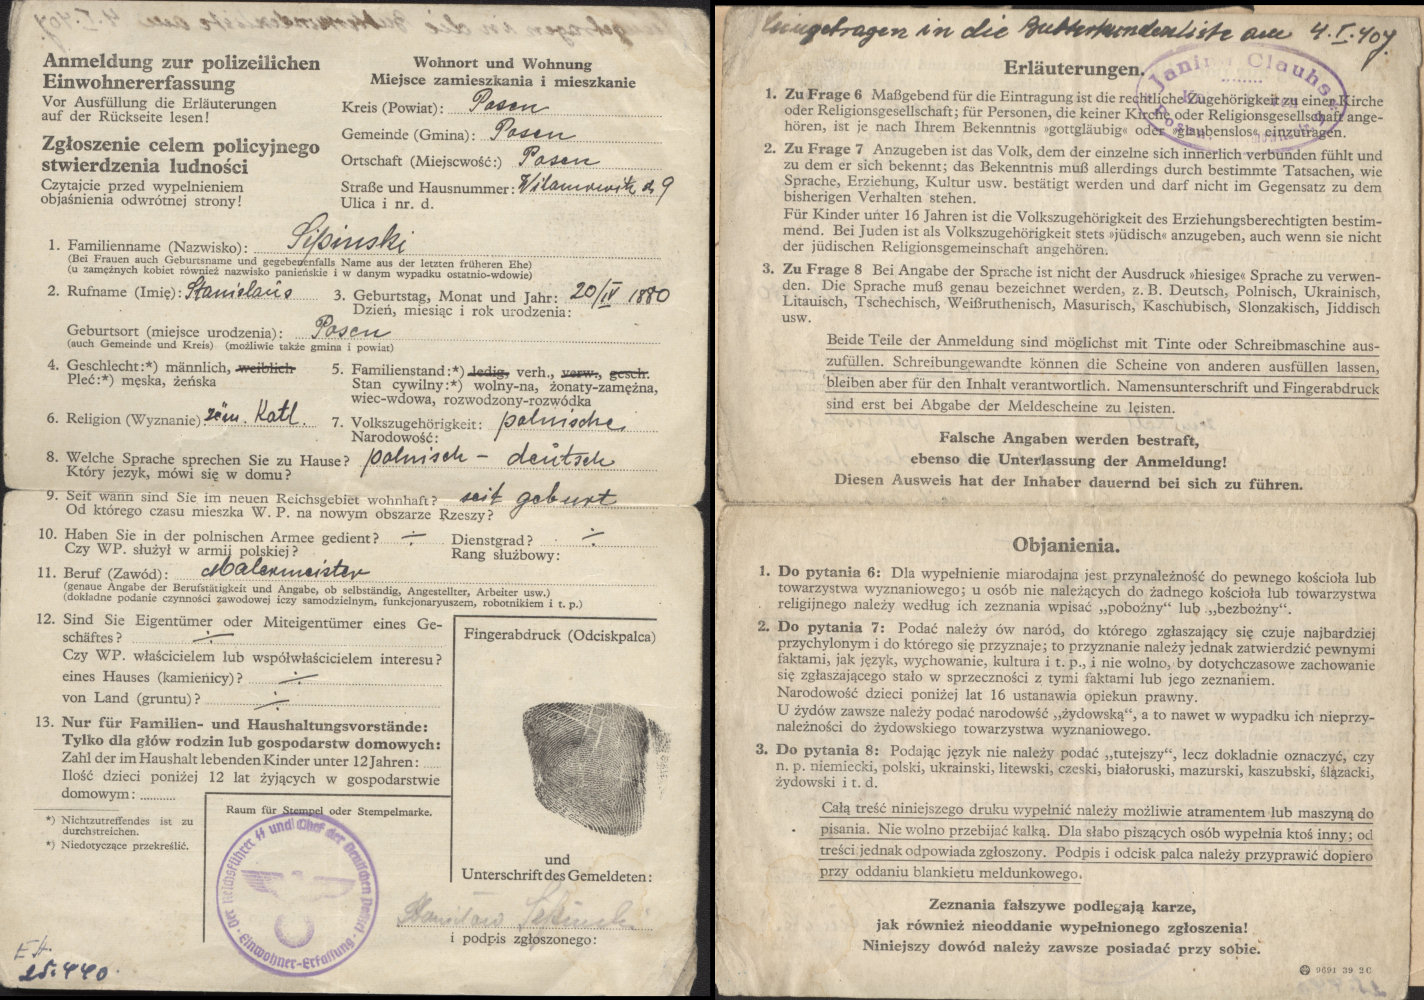 Anmeldung zur polizeilichen
Einwohnererfassung
Vor Ausfüllung die Erläuterungen
auf der Rückseite lesen!
Zgłoszenie celem policyjnego
stwierdzenia ludności
Czytajcie przed wypełnieniem
objaśnienia odwrótnej strony!
Wohnort und Wohnung
Miejsce zamieszkania i mieszkanie
Kreis (Powiat): Posen
Gemeinde (Gmina): Posen
Ortschaft (Miejscwość:) Posen
Straße und Hausnummer: 9
Ulica i nr. d.
1. Familienname (Nazwisko): Sipinski
(Bei Frauen auch Geburtsname und gegebenenfalls Name aus der letzten früheren Ehe)
(u zamężnych kobiet również nazwisko panieńskie i w danym wypadku ostatnio-wdowie)
2. Rufname (Imię): Stanislaus 3. Geburtstag, Monat und Jahr: 20/IV 1880
Dzień, miesiąc i rok urodzenia:
Geburtsort (miejsce urodzenia): Posen
(auch Gemeinde und Kreis) (możliwie także gmina i powiat)
4. Geschlecht:*) männlich, weiblich
Płeć:*) męska, żeńska
5. Familienstand:*) ledig, verh., verw., gesch.
Stan cywilny:*) wolny-na, żonaty-zamężna,
wiec-wdowa, rozwodzony-rozwódka
6. Religion (Wyznanie) röm. Katl. 7. Volkszugehörigkeit: polnische
Narodowość:
8. Welche Sprache sprechen Sie zu Hause? polnisch – deutsch
Który jezyk, mówi się w domu?
9. Seit wann sind Sie im neuen Reichsgebiet wohnhaft? seit geburt
Od którego czasu mieszka W. P. na nowym obszarze Rzeszy?
10. Haben Sie in der polnischen Armee gedient? ÷ Dienstgrad? ÷
Czy WP. służył w armji polskiej? Rang służbowy:
11. Beruf (Zawód): Malermeister
(genaue Angabe der Berufstätigkeit und Angabe, ob selbständig, Angestellter, Arbeiter usw.)
(dokładne podanie czynności zawodowej iczy samodzielnym, funkcjonaryuszem, robotnikiem i t. p.)
12. Sind Sie Eigentümer oder Miteigentümer eines Ge-
schäftes? ÷
Czy WP. właścicielem lub współwłaścicielem interesu?
eines Hauses (kamienicy)? ÷
von Land (gruntu)? ÷
13. Nur für Familien- und Haushaltungsvorstände:
Tylko dla głów rodzin lub gospodarstw domowych:
Zahl der im Haushalt lebenden Kinder unter 12 Jahren:
Ilość dzieci poniżej 12 lat żyjących w gospodarstwie
domowym:
*) Nichtzutreffendes ist zu
durchstreichen.
*) Niedotyczące przekreślić.
Raum für Stempel oder Stempelmarke.
Der Reichsführer SS und Chef der Deutschen Polizei
Einwohner-Erfassung
Fingerabdruck (Odciskpalca)
und
Unterschrift des Gemeldeten:
Stanisław Sipinski
i podpis zgłoszonego:
25.4.40
Eingetragen in die Butterkundenliste am 4.I.40
Janina
Erläuterungen.
1. Zu Frage 6 Maßgebend für die Eintragung ist die rechtliche Zugehörigkeit zu einer Kirche
oder Religionsgesellschaft; für Personen, die keiner Kirche oder Religionsgesellschaft ange-
hören, ist je nach Ihrem Bekenntnis »gottgläubig« oder »glaubenslos« einzutragen.
2. Zu Frage 7 Anzugeben ist das Volk, dem der einzelne sich innerlich verbunden fühlt und
zu dem er sich bekennt; das Bekenntnis muß allerdings durch bestimmte Tatsachen, wie
Sprache, Erziehung, Kultur usw. bestätigt werden und darf nicht im Gegensatz zu dem
bisherigen Verhalten stehen.
Für Kinder unter 16 Jahren ist die Volkszugehörigkeit des Erziehungsberechtigten bestim-
mend. Bei Juden ist als Volkszugehörigkeit stets »jüdisch« anzugeben, auch wenn sie nicht
der jüdischen Religionsgemeinschaft angehören.
3. Zu Frage 8 Bei Angabe der Sprache ist nicht der Ausdruck »hiesige« Sprache zu verwen-
den. Die Sprache muß genau bezeichnet werden, z. B. Deutsch, Polnisch, Ukrainisch,
Litauisch, Tschechisch, Weißruthenisch, Masurisch, Kaschubisch, Slonzakisch, Jiddisch
usw.
Beide Teile der Anmeldung sind möglichst mit Tinte oder Schreibmaschine aus-
zufüllen. Schreibungewandte können die Scheine von anderen ausfüllen lassen,
bleiben aber für den Inhalt verantwortlich. Namensunterschrift und Fingerabdruck
sind erst bei Abgabe der Meldescheine zu leisten.
Falsche Angaben werden bestraft,
ebenso die Unterlassung der Anmeldung!
Diesen Ausweis hat der Inhaber dauernd bei sich zu führen.
Objanienia.
1. Do pytania 6: Dla wypełnienie miarodajna jest przynależność do pewnego kościoła lub
towarzystwa wyznaniowego; u osób nie należących do żadnego kościoła lub towarzystwa
religijnego należy według ich zeznania wpisać „pobożny“ lub „bezbożny“.
2. Do pytania 7: Podać należy ów naród, do którego zgłaszający się czuje najbardziej
przychylonym i do którego się przyznaje; to przyznanie należy jednak zatwierdzić pewnymi
faktami, jak język, wychowanie, kultura i t. p., i nie wolno, by dotychczasowe zachowanie
się zgłaszającego stało w sprzeczności z tymi faktami lub jego zeznaniem.
Narodowość dzieci poniżej lat 16 ustanawia opiekun prawny.
U żydów zawsze należy podać narodowść „żydowską“, a to nawet w wypadku ich nieprzy-
należności do żydowskiego towarzystwa wyznaniowego.
3. Do pytania 8: Podając język nie należy podać „tutejszy“, lecz dokladnie oznaczyć, czy
n. p. niemiecki, polski, ukrainski, litewski, czeski, białoruski, mazurski, kaszubski, ślązacki,
żydowski i t. d.
Całą treść niniejszego druku wypełnić należy możliwie atramentem lub maszyną do
pisania. Nie wolno przebijać kalką. Dla słabo piszących osób wypełnia ktoś inny; od
treści jednak odpowiada zgłoszony. Podpis i odcisk palca należy przyprawić dopiero
przy oddaniu blankietu meldunkowego.
Zeznania fałszywe podlegają karze,
jak również nieoddanie wypełnionego zgłoszenia!
Niniejszy dowód należy zawsze posiadać przy sobie.
9691 39 2C